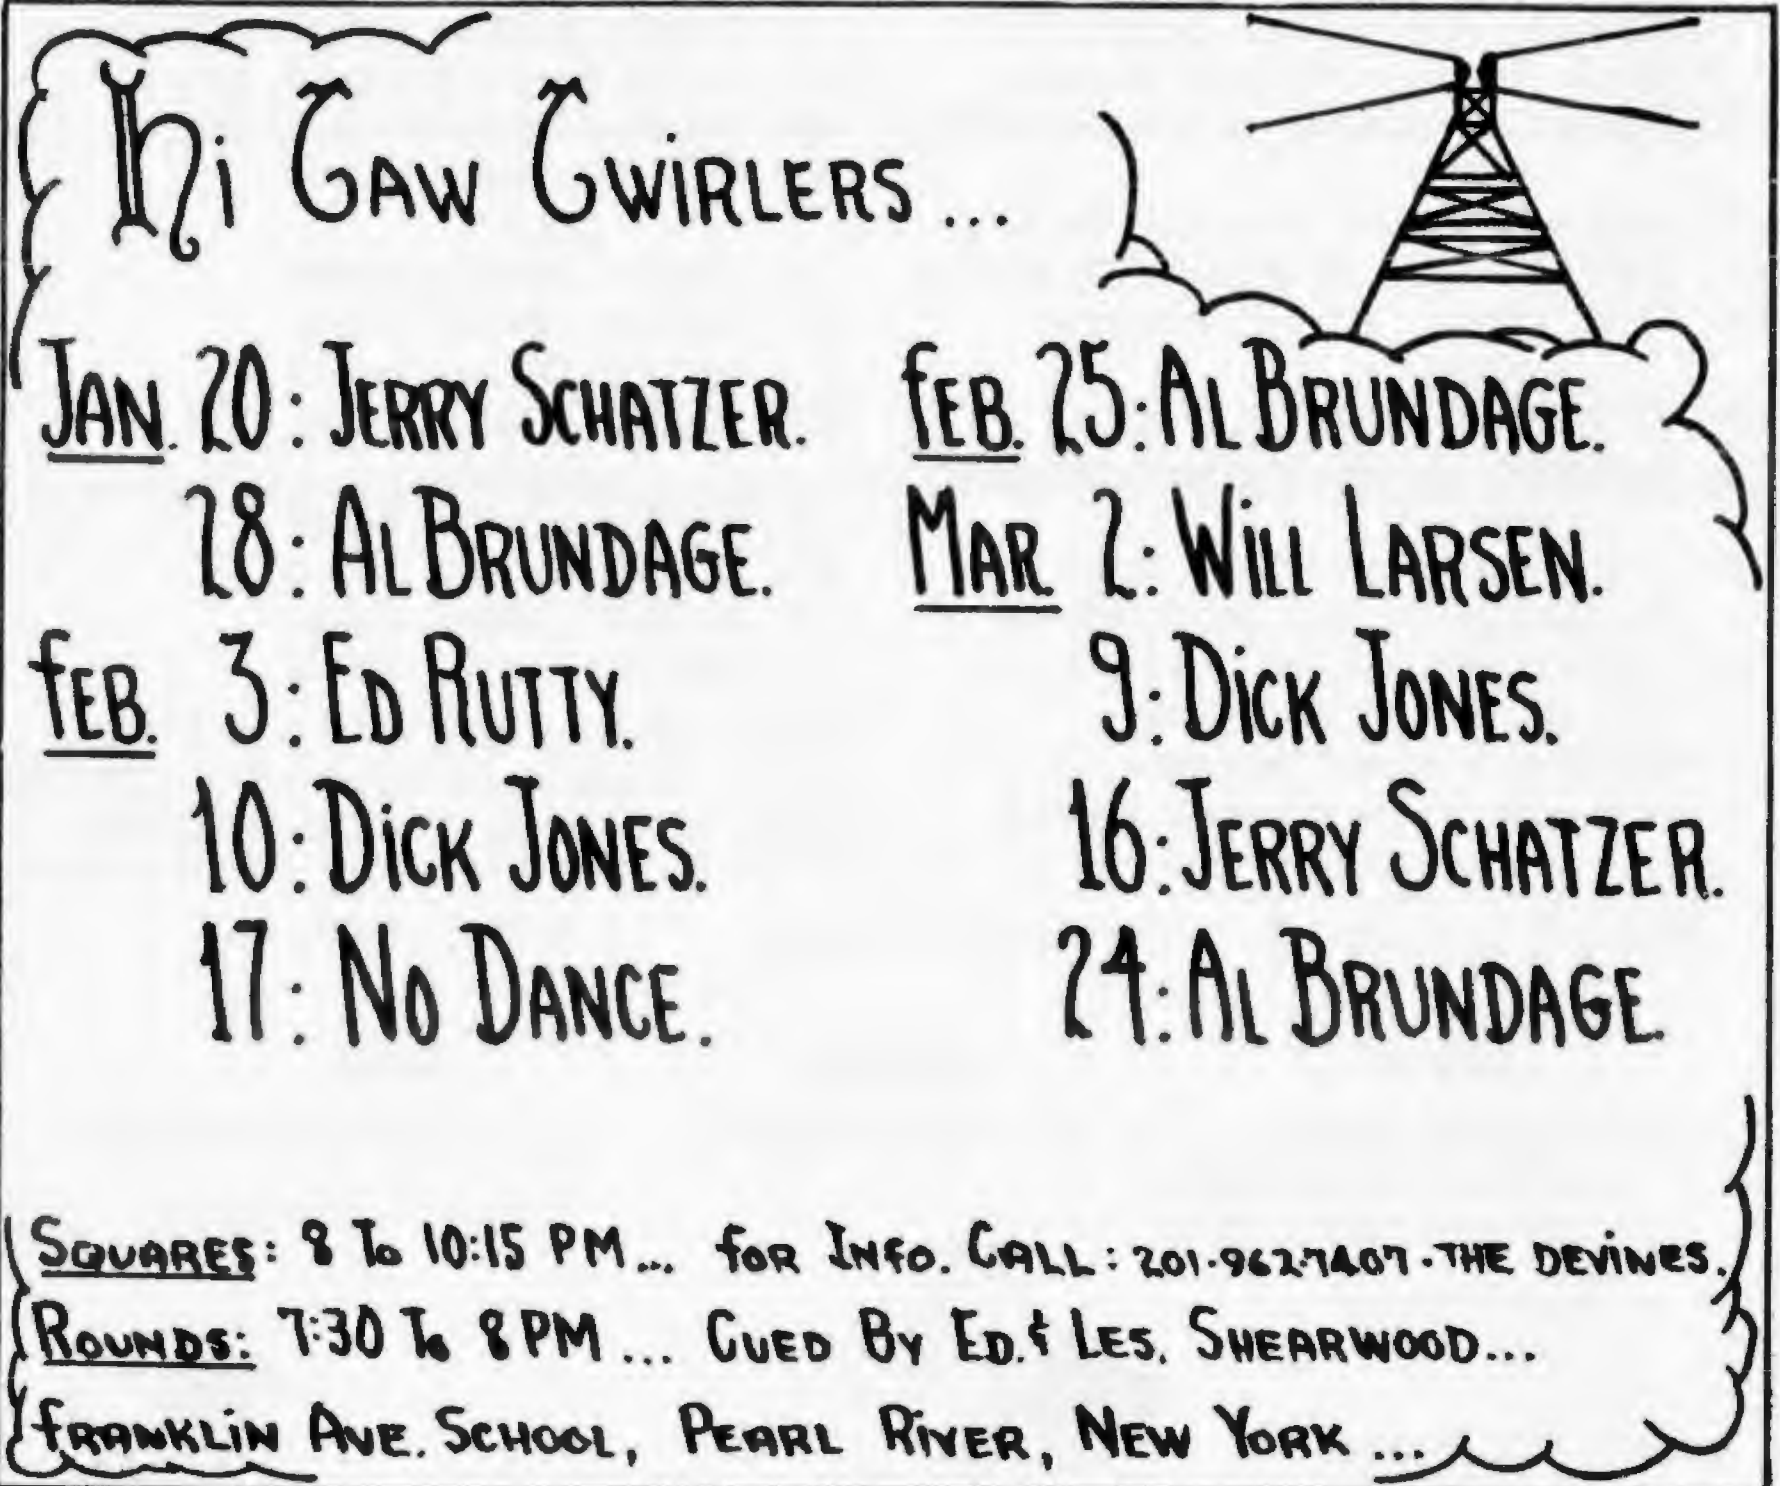 Hi TAW TWiRLERS ...
JAN. 20: JERRY SCHATZER.
28: AL BRUNDAGE.
FEB. 3: ED RUTTY.
10: DiCK JONES.
17: NO DANCE.
FEB. 25: AL BRUNDAGE.
MAR. 2: WiLL LARSEN.
9: DiCK JONES.
16: JERRY SCHATZER.
24: AL BRUNDAGE.
SQUARES: 8 To 10:15 PM... FOR INFO. CALL: 201-962-7407-THE DEViNES.
ROUNDS: 7:30 To 8 PM ... CUED BY ED. & LES. SHEARWOOD...
FRANKLiN AVE. SCHOOL, PEARL RiVER, NEW YORK ...